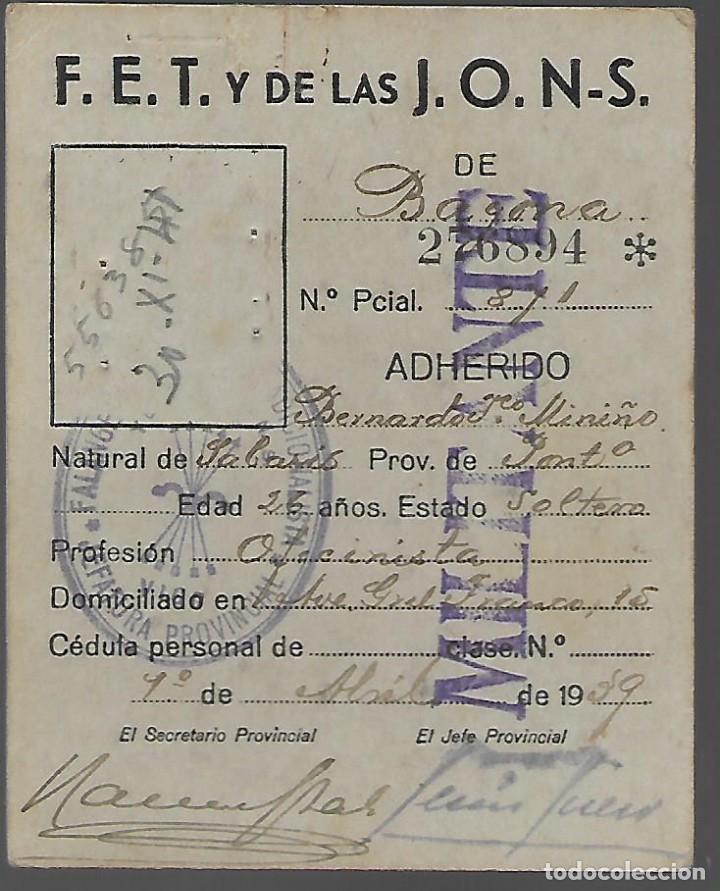 F. E. T. Y DE LAS J. O. N-S.
DE
Bayona
276894 *
55638
30-XI-41
N.º Pcial. 871
ADHERIDO
MILITANTE
Bernardo Gco. Miniño
Natural de Sabaris Prov. de Pontª
Edad 26 años. Estado Soltero
Profesión Oficinista
Domiciliado en Ave. Gral Franco, 15
Cédula personal de clase. N.º
1º de Abril de 1939
El Secretario Provincial El Jefe Provincial
Jesús Suero
FALANGE TRADICIONALISTA
JEFATURA PROVINCIAL
VIGO
todocoleccion.net